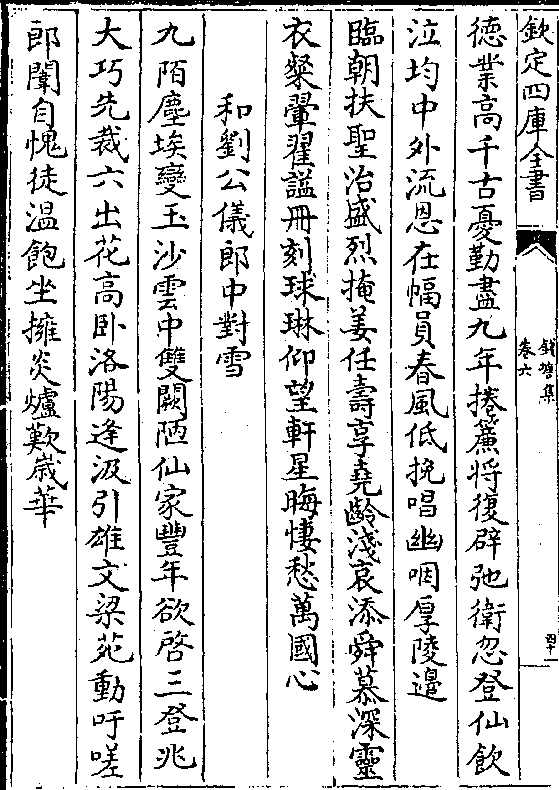 欽定四庫全書
錢塘集
卷六
四十
德業高千古憂勤盡九年捲簾将復辟弛衛忽登仙飲
泣均中外流恩在幅員春風低挽唱幽咽厚陵邉
臨朝扶聖治盛烈掩姜任壽享堯齡淺哀添舜慕深靈
衣粲翬翟諡冊刻球琳仰望軒星晦悽愁萬國心
和劉公儀郎中對雪
九陌塵埃變玉沙雲中雙闕陋仙家豐年欲啓三登兆
大巧先裁六出花高卧洛陽逢汲引雄文梁苑動吁嗟
郎闈自愧徒温飽坐擁炎爐歎嵗華